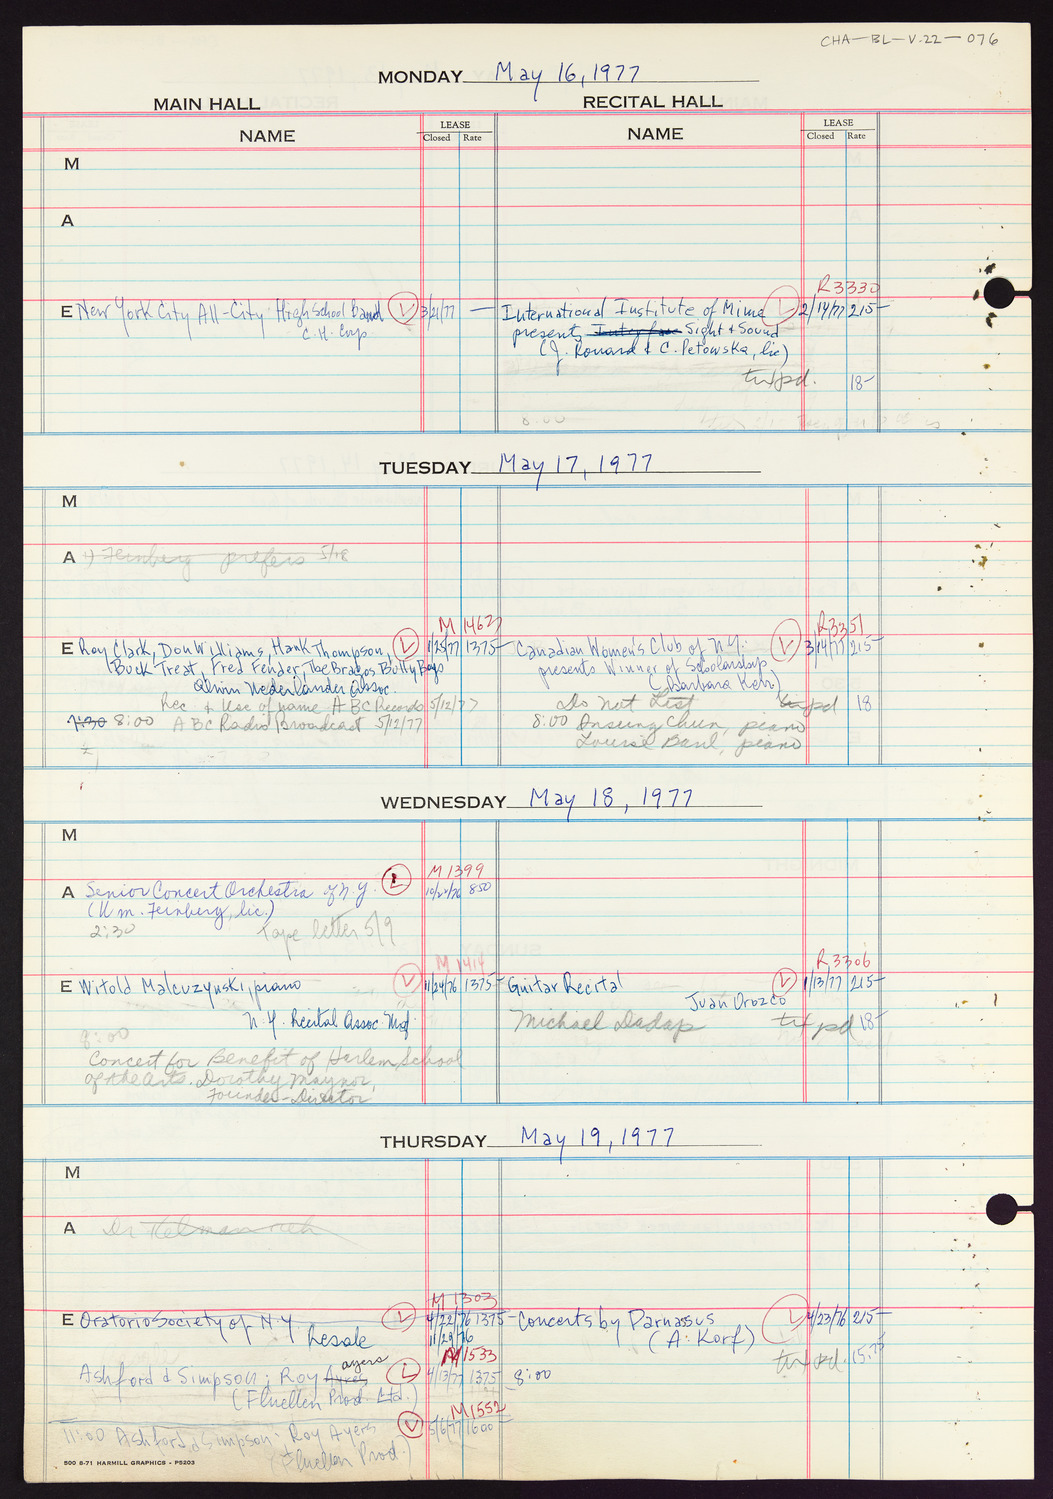 CHA-BL-V.22-076
MONDAY May 16, 1977
MAIN HALL RECITAL HALL
NAME LEASE Closed Rate NAME LEASE Closed Rate
M
A
R3330
E New York City All-City High School Band L 3/21/77 — International Institute of Mime L 2/14/77 215-
C.H. Corp presents Sight & Sound
(J. Ronard & C. Petowska, lic)
pd. 18-
8:00
TUESDAY May 17, 1977
M
A 1) Feinberg prefers 5/18
M 1462 R3351
E Roy Clark, Don Williams, Hank Thompson, L 1/25/77 1375- Canadian Women's Club of N.Y. L 3/14/77 215-
Buck Trent, Fred Fender, The Brazos Bully Boys presents Winner of Scholarship
Nederlander Assoc. (Barbara Kerr)
Rec. & Use of name ABC Records 5/12/77 Do Not List pd 18
7:30 8:00 ABC Radio Broadcast 5/12/77 8:00 Insung Chun, piano
Louise Baril, piano
WEDNESDAY May 18, 1977
M
M 1399
A Senior Concert Orchestra of N.Y. L 10/22/76 850
(Wm. Feinberg, lic.)
2:30 Tape letter 5/9
M 1414 R3306
E Witold Malcuzynski, piano L 11/24/76 1375- Guitar Recital L 1/13/77 215-
N.Y. Recital Assoc. Mgt. Juan Orozco
8:00 Michael Dadap pd 18-
Concert for Benefit of Harlem School
of the Arts. Dorothy Maynor,
Founder-Director
THURSDAY May 19, 1977
M
A Dr Kelman
M 1303
E Oratorio Society of NY L 4/22/76 1375- Concerts by Parnassus L 4/23/76 215-
Resale 11/29/76 (A. Korf)
M1533 pd. 15.75
Ashford & Simpson; Roy Ayres Ayers L 4/13/77 1375 8:00
(Fluellen Prod. Ltd.)
M1552
11:00 Ashford & Simpson; Roy Ayers L 5/6/77 1600
(Fluellen Prod.)
500 8-71 HARMILL GRAPHICS - P5203